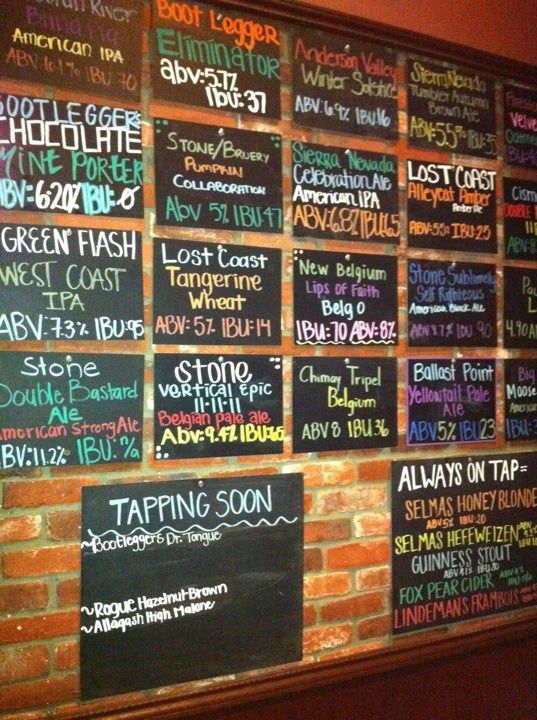 River
American IPA
ABV: IBU:70
Boot Legger
Eliminator
abv:5.7%
IBU:37
Anderson Valley
Winter Solstice
ABV:6.9% IBU:16
Sierra Nevada
Tumbler Autumn
Brown Ale
ABV:5.5% IBU:35
BOOTLEGGERS
CHOCOLATE
Mint Porter
ABV:6.20% IBU:
Stone/Bruery
Pumpkin
Collaboration
Abv 5% IBU 47
Sierra Nevada
Celebration Ale
American IPA
ABV:6.8% IBU:65
Lost Coast
Alleycat Amber
Amber Ale
ABV:5.5% IBU:25
GREEN FLASH
WEST COAST
IPA
ABV:7.3% IBU:95
Lost Coast
Tangerine
Wheat
ABV:5% IBU:14
New Belgium
Lips of Faith
Belg O
IBU:70 ABV:8%
Stone Sublimely
Self Righteous
American Black Ale
IBU 90
4.90 A
Stone
Double Bastard
Ale
American Strong Ale
ABV:11.2% IBU:n/a
Stone
Vertical Epic
11:11:11
Belgian pale ale
Abv:9.4% IBU:65
Chimay Tripel
Belgium
ABV 8 IBU 36
Ballast Point
Yellowtail Pale
Ale
ABV 5% IBU 23
Big
Moose
American
TAPPING SOON
~Bootlegger's Dr. Tongue
~Rogue Hazelnut Brown
~Allagash High Malone
ALWAYS ON TAP=
SELMAS HONEY BLONDE
ABV 5% IBU:20
SELMAS HEFEWEIZEN
GUINNESS STOUT
FOX PEAR CIDER
LINDEMAN'S FRAMBOIS